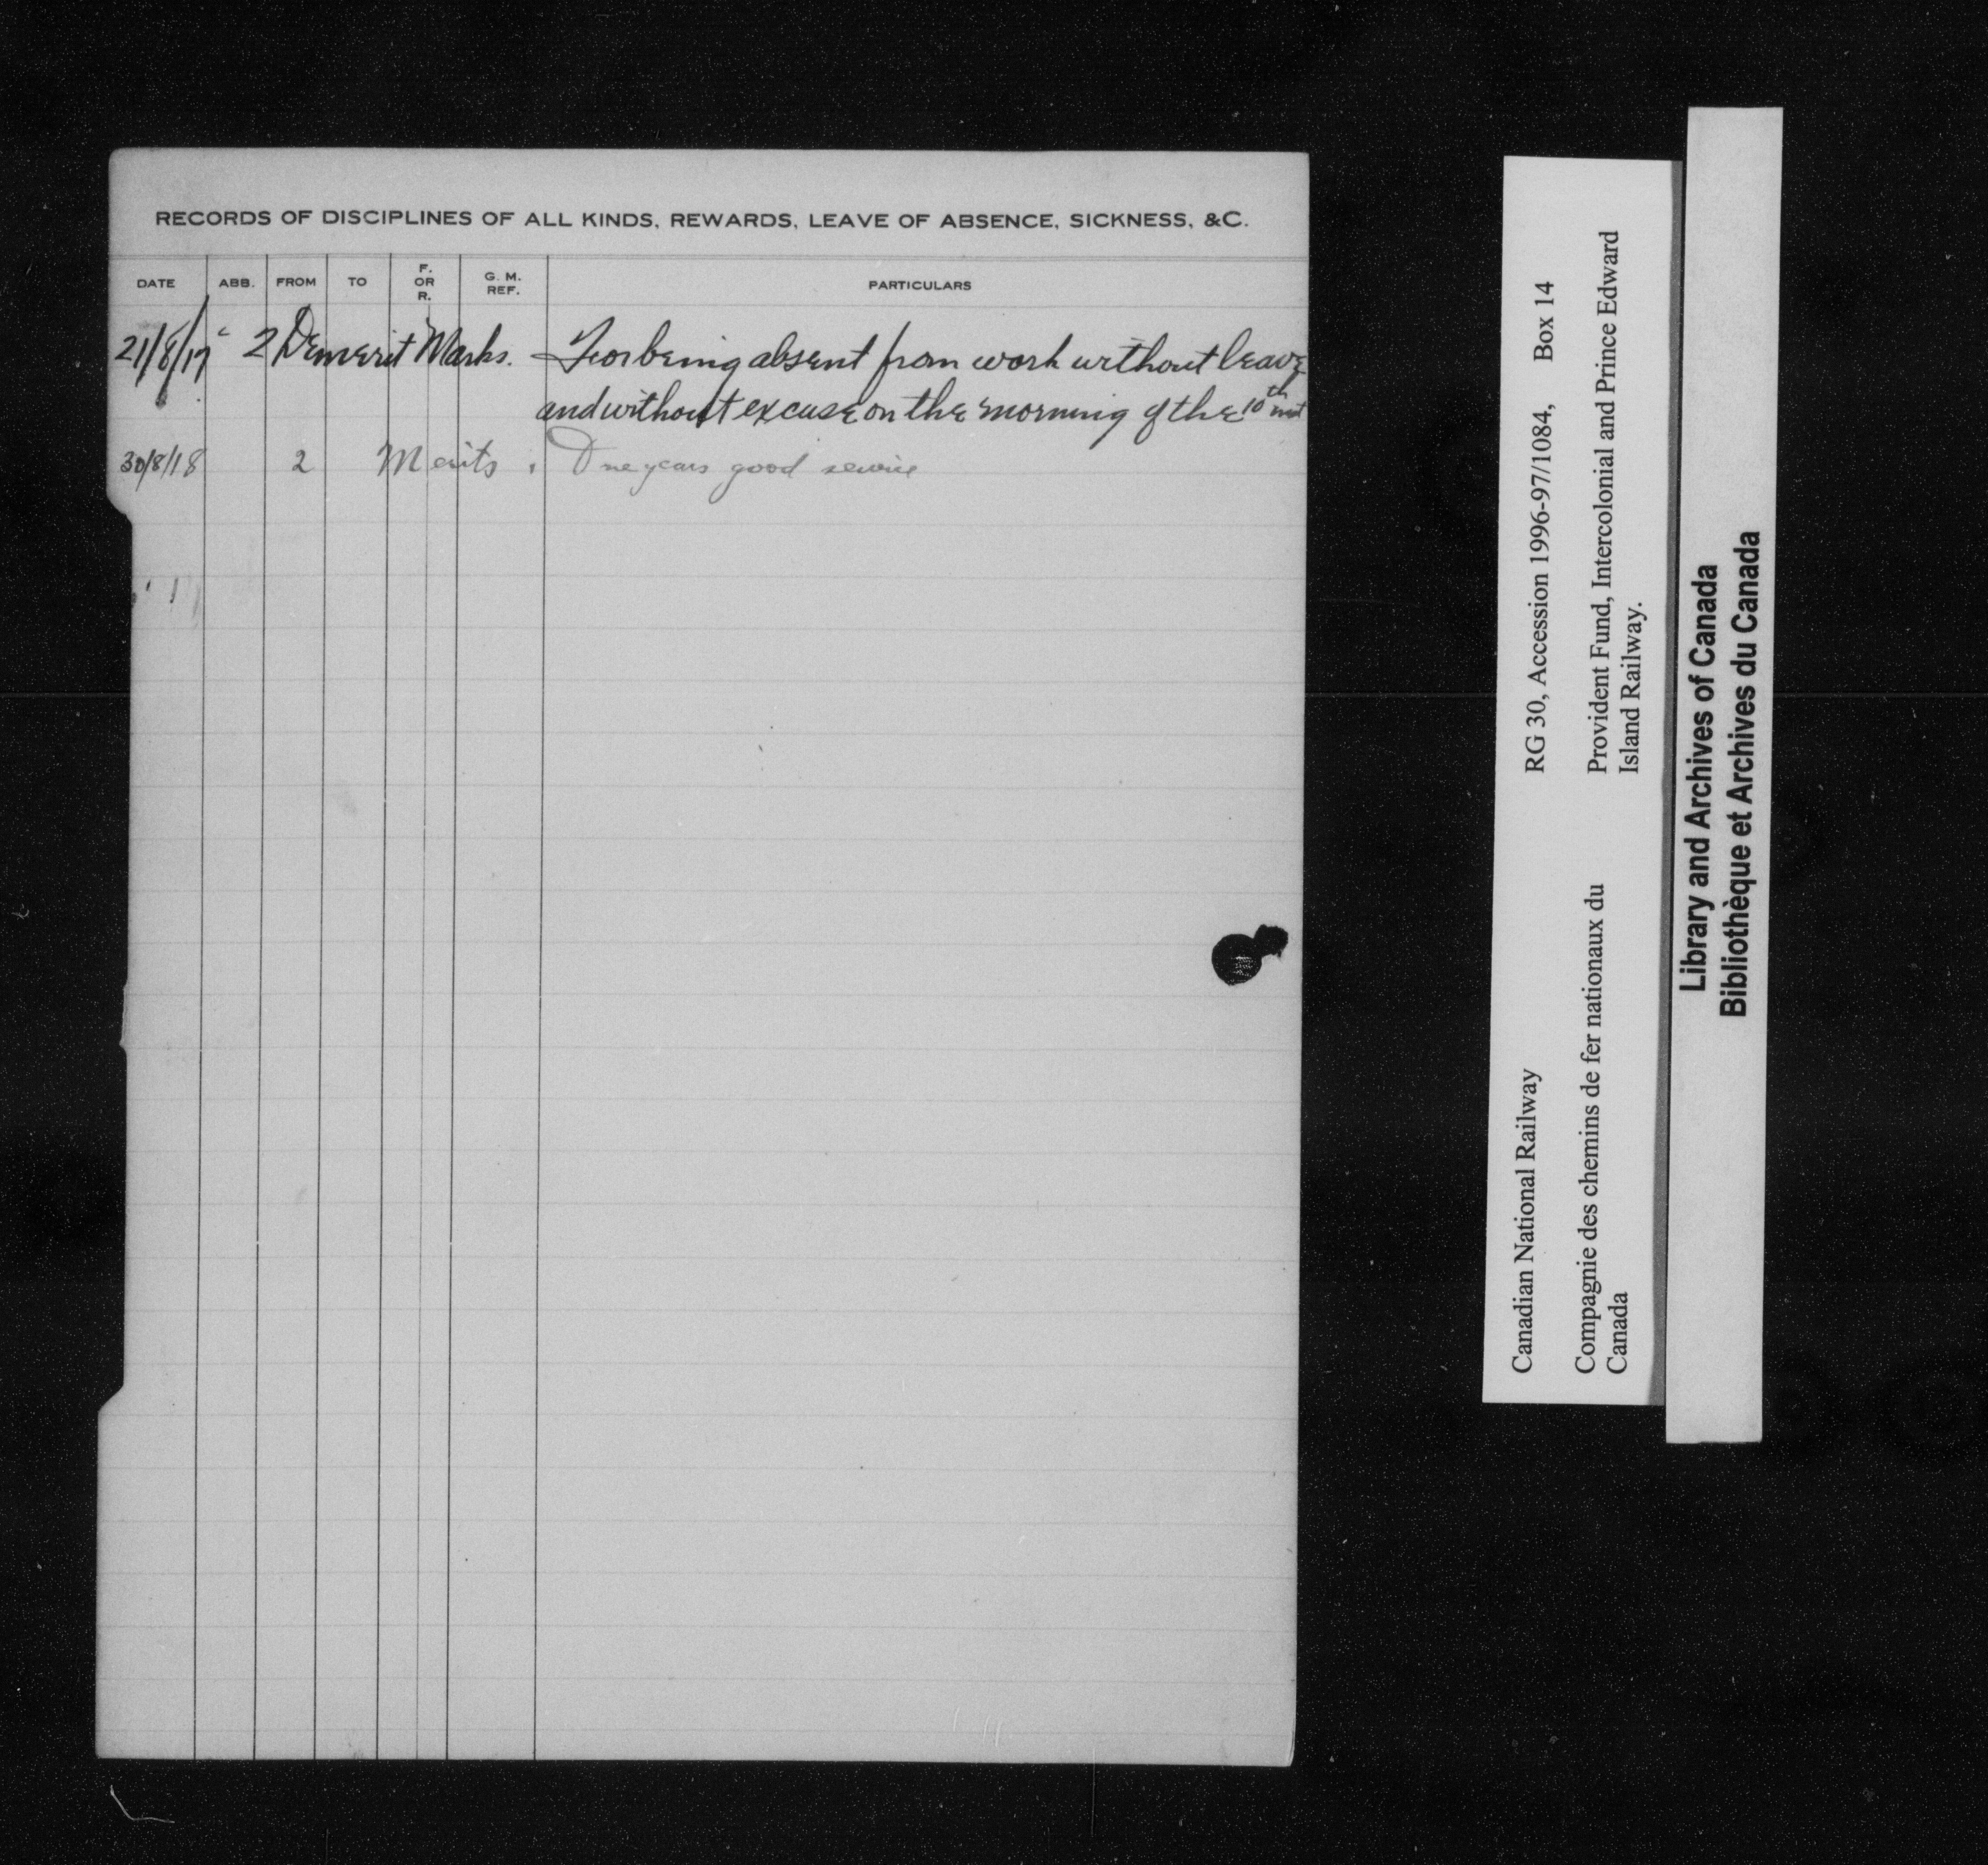 RECORDS OF DISCIPLINES OF ALL KINDS, REWARDS, LEAVE OF ABSENCE, SICKNESS, &C.
DATE ABB. FROM TO F. OR R. G. M. REF. PARTICULARS
21/8/17 2 Demerit Marks. For being absent from work without leave
and without excuse on the morning of the 10th inst
30/8/18 2 Merits. One years good service
Canadian National Railway RG 30, Accession 1996-97/1084, Box 14
Compagnie des chemins de fer nationaux du Provident Fund, Intercolonial and Prince Edward
Canada Island Railway.
Library and Archives of Canada
Bibliothèque et Archives du Canada